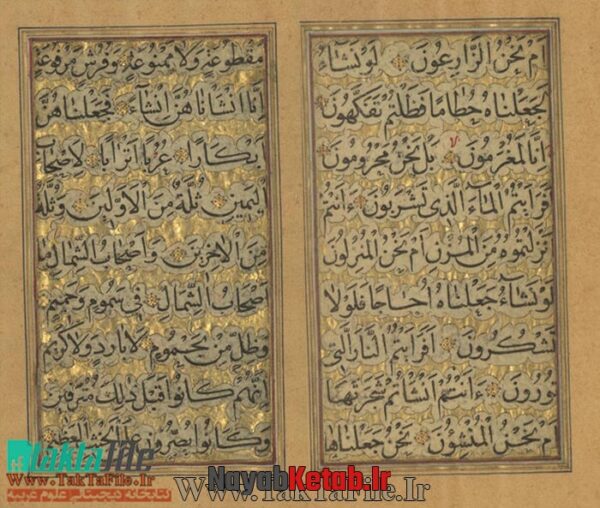 اَمْ نَحْنُ الزَّارِعُونَ لَوْ نَشَآءُ
لَجَعَلْنَاهُ حُطَامًا فَظَلْتُمْ تَفَكَّهُونَ
اِنَّا لَمُغْرَمُونَ بَلْ نَحْنُ مَحْرُومُونَ
اَفَرَاَيْتُمُ الْمَآءَ الَّذِي تَشْرَبُونَ ءَاَنْتُمْ
اَنْزَلْتُمُوهُ مِنَ الْمُزْنِ اَمْ نَحْنُ الْمُنْزِلُونَ
لَوْ نَشَآءُ جَعَلْنَاهُ اُجَاجًا فَلَوْلَا
تَشْكُرُونَ اَفَرَاَيْتُمُ النَّارَ الَّتِي
تُورُونَ ءَاَنْتُمْ اَنْشَاْتُمْ شَجَرَتَهَا
اَمْ نَحْنُ الْمُنْشِؤُنَ نَحْنُ جَعَلْنَاهَا
مَقْطُوعَةٍ وَلَا مَمْنُوعَةٍ وَفُرُشٍ مَرْفُوعَةٍ
اِنَّا اَنْشَاْنَاهُنَّ اِنْشَآءً فَجَعَلْنَاهُنَّ
اَبْكَارًا عُرُبًا اَتْرَابًا لِاَصْحَابِ
الْيَمِينِ ثُلَّةٌ مِنَ الْاَوَّلِينَ وَثُلَّةٌ
مِنَ الْاٰخِرِينَ وَاَصْحَابُ الشِّمَالِ مَا
اَصْحَابُ الشِّمَالِ فِي سَمُومٍ وَحَمِيمٍ
وَظِلٍّ مِنْ يَحْمُومٍ لَا بَارِدٍ وَلَا كَرِيمٍ
اِنَّهُمْ كَانُوا قَبْلَ ذٰلِكَ مُتْرَفِينَ
وَكَانُوا يُصِرُّونَ
takta file
www.TakTaFile.Ir
کتابخانه دیجیتالی علوم غریبه
NayabKetab.Ir
www.TakTaFile.Ir